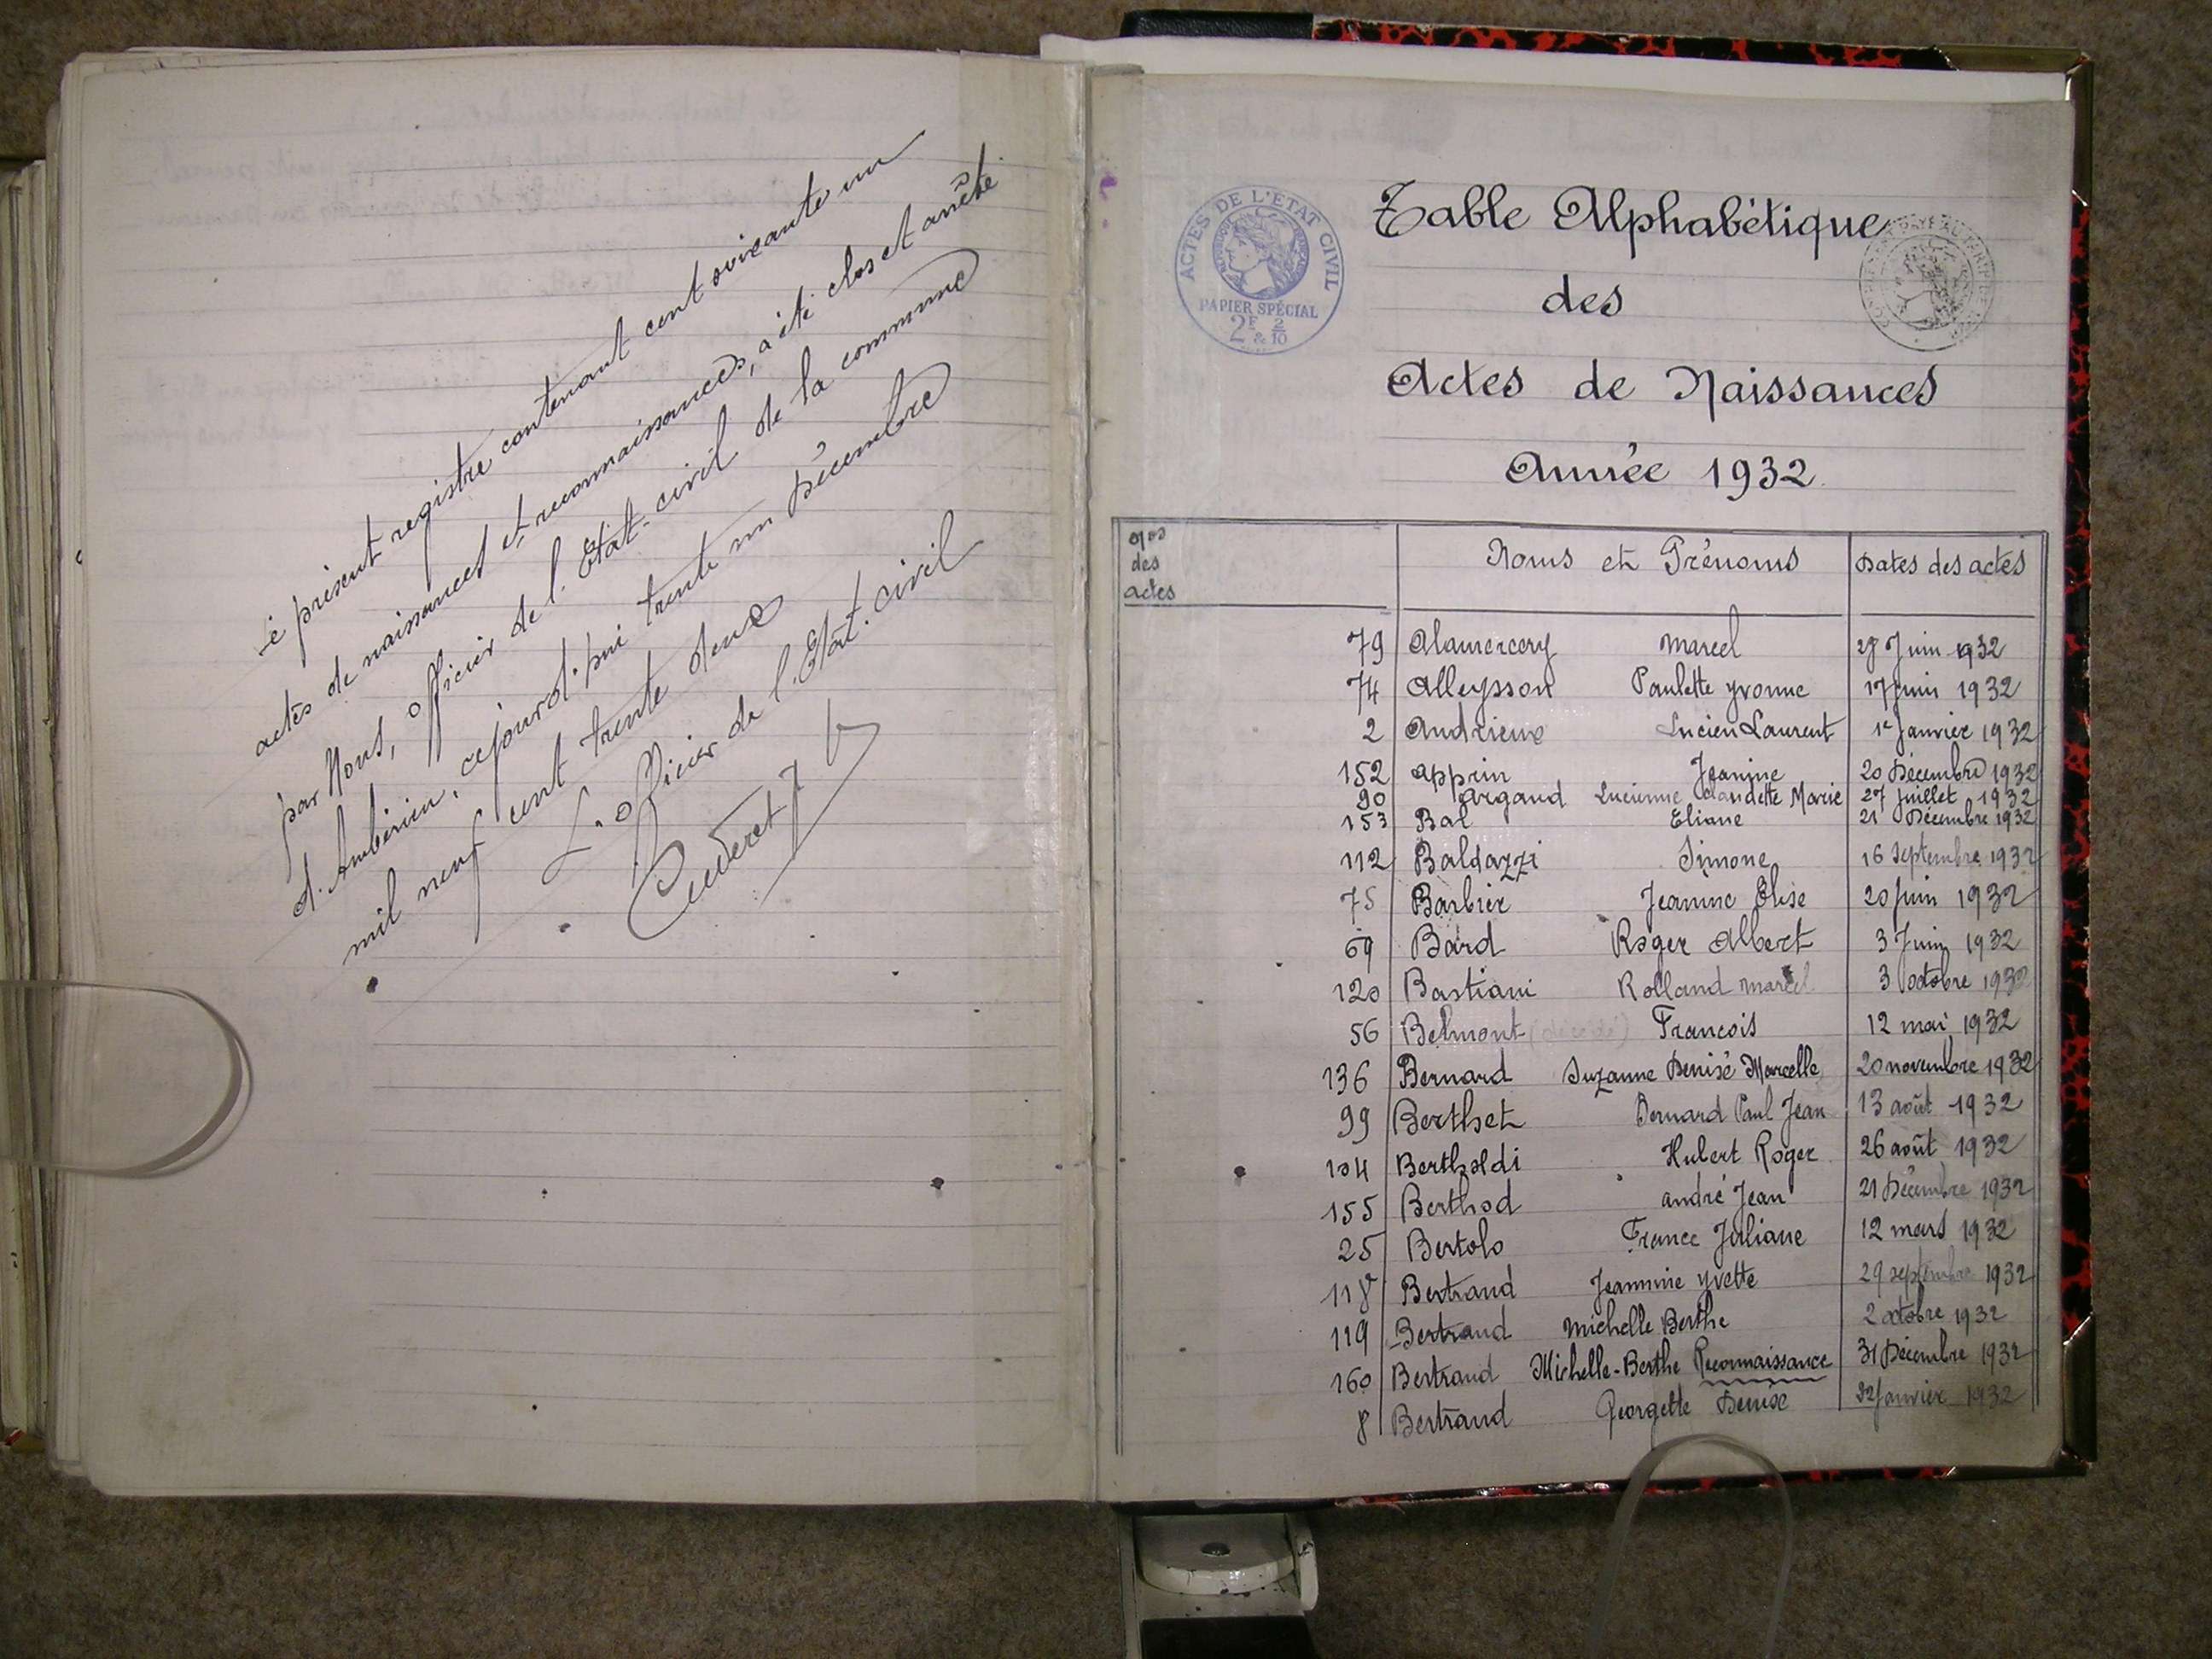 Le présent registre contenant cent soixante un
actes de naissances et reconnaissances, a été clos et arrêté
par Nous, officier de l'Etat-civil de la commune
d'Ambérieu, cejourd'hui trente un Décembre
mil neuf cent trente deux
L'officier de l'Etat-civil
ACTES DE L'ETAT CIVIL
PAPIER SPÉCIAL
2F & 2/10
Table Alphabétique
des
Actes de Naissances
Année 1932.
Nos des actes Noms et Prénoms Dates des actes
79 Alamercery Marcel 28 Juin 1932
74 Alleysson Paulette Yvonne 17 juin 1932
2 Andrieux Lucien Laurent 1er Janvier 1932
152 Apprin Jeanine 20 Décembre 1932
90 Argand Lucienne Claudette Marie 27 juillet 1932
153 Bal Eliane 21 Décembre 1932
112 Baldazzi Simone 16 Septembre 1932
75 Barbier Jeanine Elise 20 juin 1932
69 Bard Roger Albert 3 Juin 1932
120 Bastiani Rolland Marcel 3 octobre 1932
56 Belmont (décédé) Francois 12 mai 1932
136 Bernard Suzanne Denise Marcelle 20 novembre 1932
99 Berthet Bernard Paul Jean 13 août 1932
104 Bertholdi Hubert Roger 26 août 1932
155 Berthod André Jean 21 Décembre 1932
25 Bertolo France Juliane 12 mars 1932
118 Bertrand Jeannine Yvette 29 septembre 1932
119 Bertrand Michelle Berthe 2 octobre 1932
160 Bertrand Michelle-Berthe Reconnaissance 31 Décembre 1932
8 Bertrand Georgette Denise 22 Janvier 1932